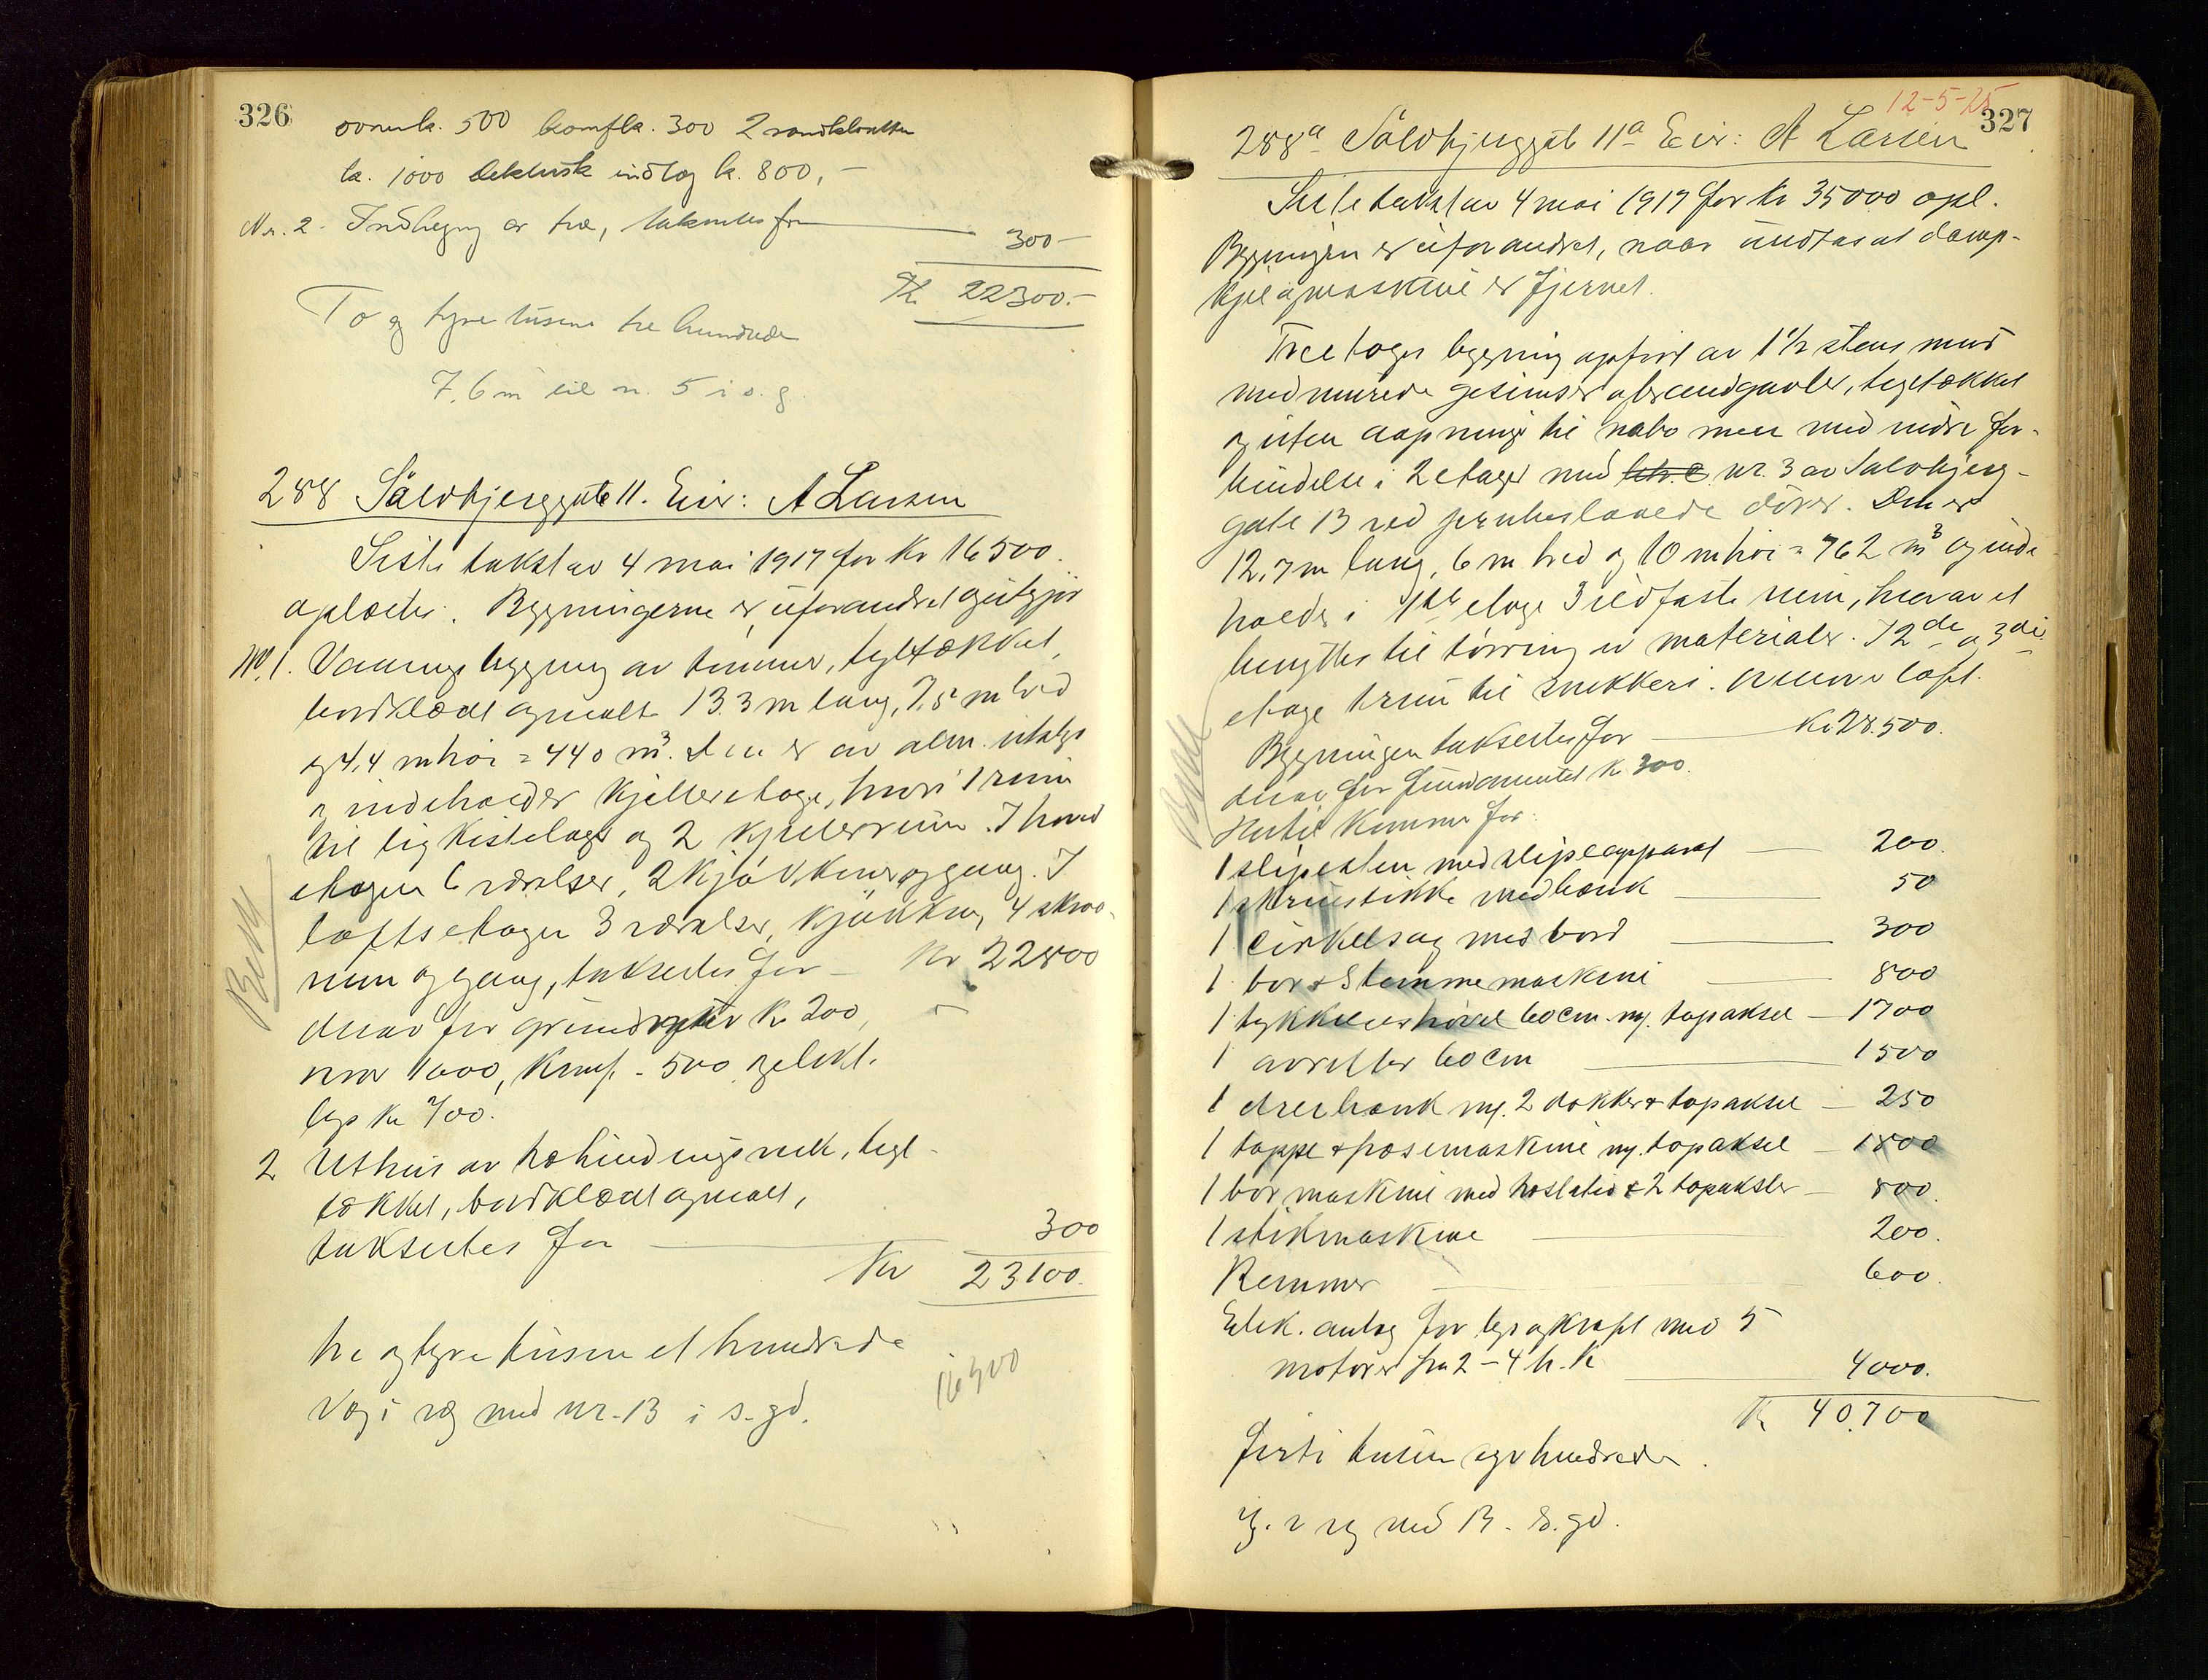 326
ovner k. 500 komfk. 300 2 vandklosetter
k. 1000 elektrisk indlag k. 800,-
Nr. 2. Indhegng av træ, taksertes for 300-
Kr 22300.-
To og tyve tusine tre hundrede
7,6 m til n. 5 i s. g.
288 Sølvbjerggate 11. Eier: A Larsen
Siste takst av 4 mai 1917 for Kr 16500.
oplæstes. Bygningerne er uforandret og utgjør
No. 1. Vaanings bygning av tømmer, tegltækket,
bordklædt og malt 13.3 m lang, 7,5 m bred
og 4,4 m høi = 440 m³. Den er av alm. utstyr
og indeholder kjelleretage, hvori 1 rum
til ligkistelager og 2 kjelderrum. I hoved
etagen 6 værelser, 2 kjøkkener og gang. I
loftsetagen 3 værelser, kjøkken, 4 skraa-
rum og gang, taksertes for – Kr 22800
derav for grundmur Kr 200,
ovner 1000, Komf. - 500 og elekt.
lys Kr 700.
2 Uthus av træbindingsverk, tegl-
tækket, bordklædt og malt,
taksertes for 300
Kr 23100.
tre og tyve tusen et hundrede
Væg i væg med nr. 13 i s. gd.
16500
12-5-25
327
288a Sølvbjerggate 11a Eier: A Larsen
Siste takst av 4 mai 1917 for Kr 35000 opl.
Bygningen er uforandret, naar undtas at damp-
kjel og maskine er fjernet.
Treetages bygning opført av 1½ stens mur
med murede gesimser og brandgavler, tegltækket
og uten aapninger til nabo men med indre for-
bindelse i 2 etager med nr. 3 av Sølvbjerg-
gate 13 ved jernbeslaaede dører. Den er
12,7 m lang, 6 m bred og 10 m høi = 762 m³ og inde
holder i 1ste etage 3 ildfaste rum, hvorav et
benyttes til tørring av materialer. I 2de og 3die
etage 1 rum til snekkeri. Ovenover loft.
Bygningen taksertes for Kr 28.500.
derav for fundamentet Kr. 300.
Hertil kommer for:
1 slipesten med slipeapparat 200.
1 skruestikke med bænk 50
1 cirkelsag med bord 300
1 bor & Stemmemaskine 800
1 tykkelseshøvel 60 cm. og topaksel – 1700
1 avretter 60 cm 1500
1 dreiebænk og 2 dokker & topaksel – 250
1 tappe & fræsemaskine og topaksel – 1800
1 bormaskine med 2 topaksler – 800.
1 stikmaskine 200.
Remmer 600.
Elek. anlæg for lys og kraft med 5
motorer fra 2 – 4 h.k 4000.
Kr 40.700
Førti tusen syv hundrede.
V. i væg med 13. s. gd.